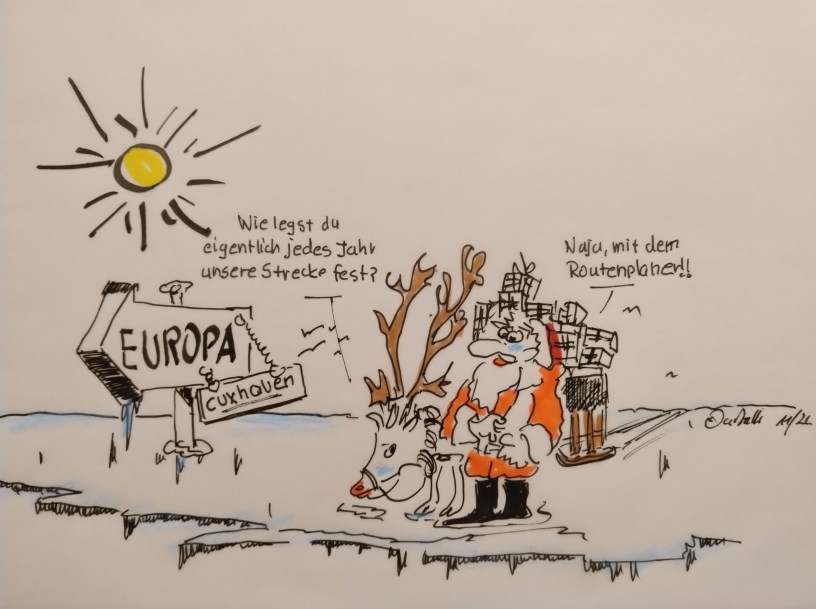 Wie legst du
eigentlich jedes Jahr
unsere Strecke fest?
Naja, mit dem
Routenplaner!!
EUROPA
cuxhaven
11/21